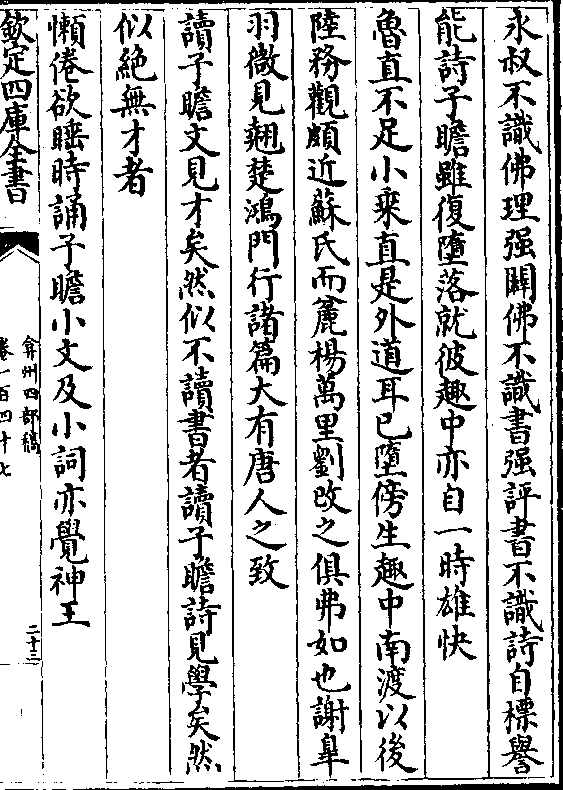 永叔不識佛理强闢佛不識書强評書不識詩自標譽
能詩子瞻雖復墮落就彼趣中亦自一時雄快
魯直不足小乗直是外道耳已墮傍生趣中南渡以後
陸務觀頗近蘇氏而麄楊萬里劉改之俱弗如也謝臯
羽微見翹楚鴻門行諸篇大有唐人之致
讀子瞻文見才矣然似不讀書者讀子瞻詩見學矣然
似絶無才者
懶倦欲睡時誦子瞻小文及小詞亦覺神王
欽定四庫全書
弇州四部稿
卷一百四十七
二十三